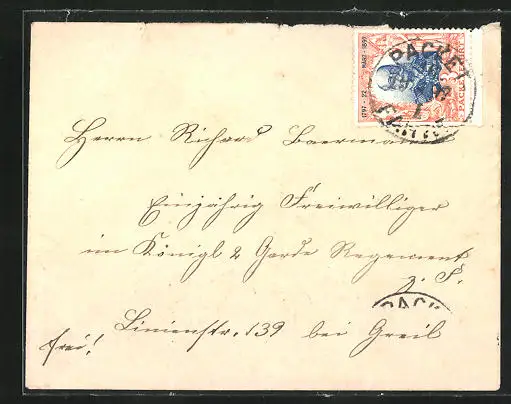 1797 · 22 MÄRZ · 1897
PACKET
PACKETFAHRT
Herrn Richard Baermann
Einjährig Freiwilliger
im Königl 2 Garde Regement
z. F.
PACK
Linienstr. 139 bei Greil
frei!